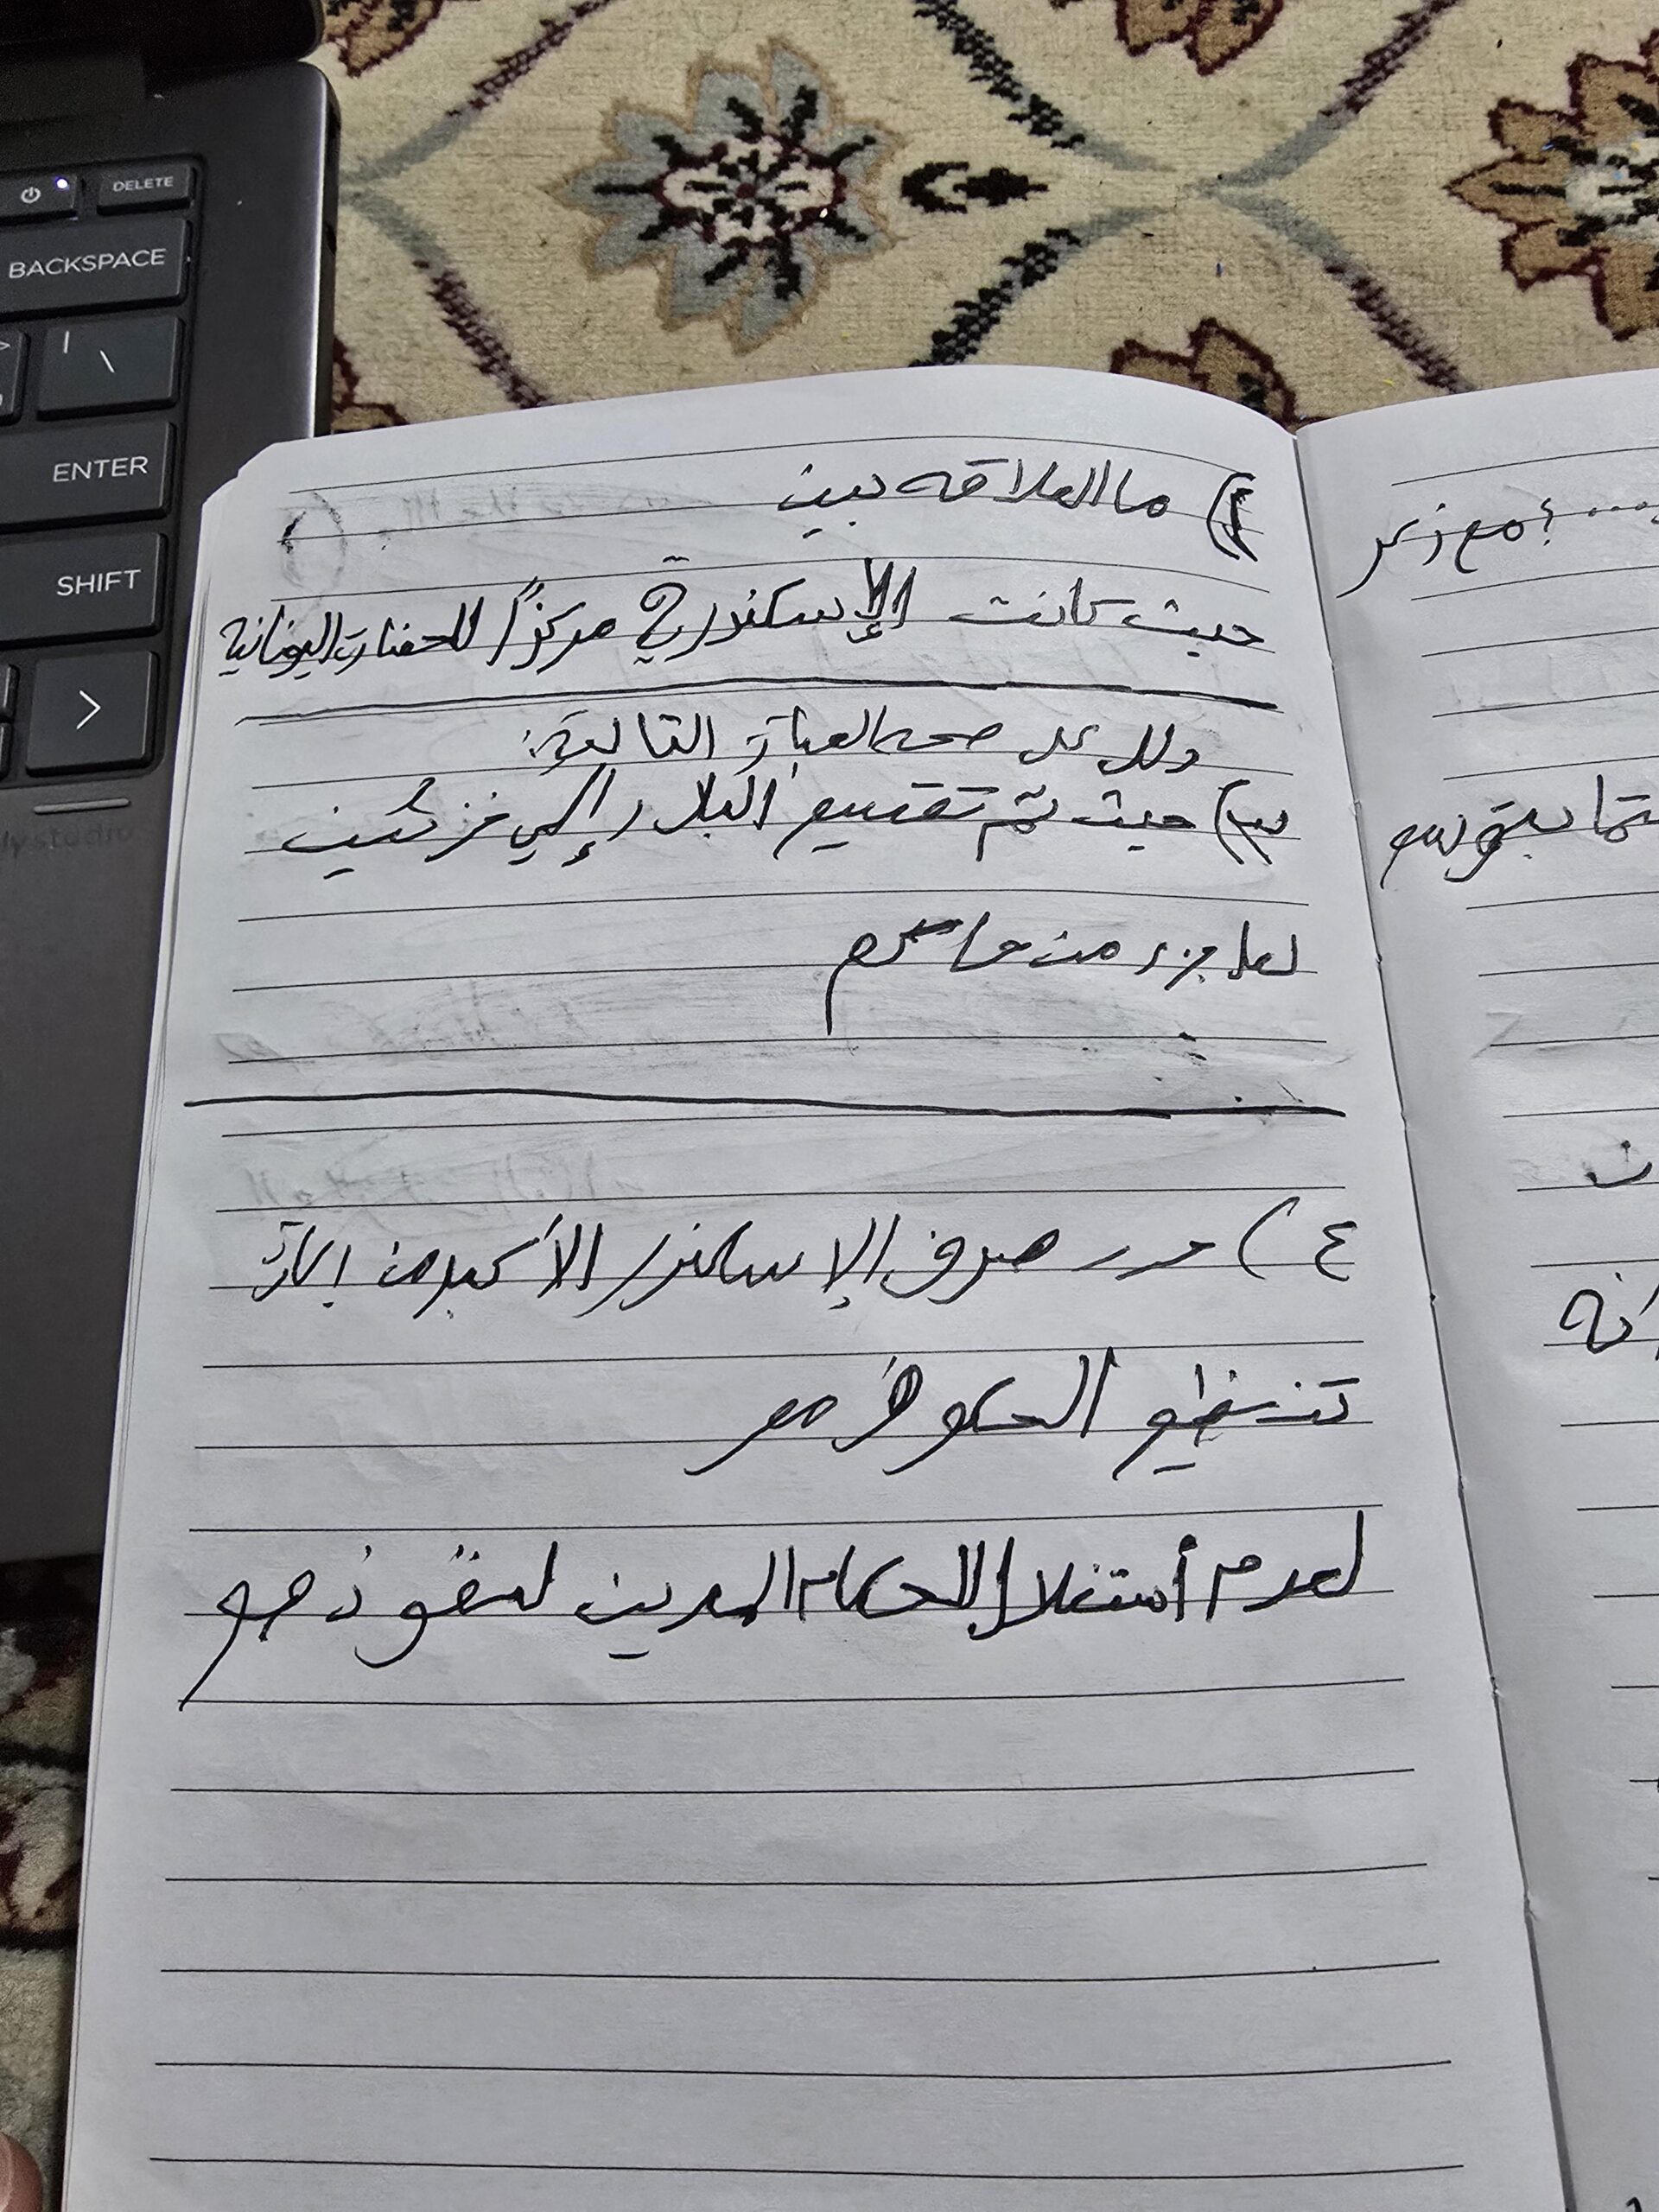 DELETE
BACKSPACE
| \
ENTER
SHIFT
>
أ) ما العلاقه بين
حيث كانت الإسكندرية مركزاً للحضارة اليونانية
دلل على صحه العبارة التالية:
ب) حيث تم تقسيم البلاد إلي جزئين
لكل جزء من حاكم
٤) حدد هدف الإسكندر الأكبر من إعادة
تنظيم الحكو في مصر
لعدم أستغلال الحكام المصريين لنفوذهم
؟ مع ذكر